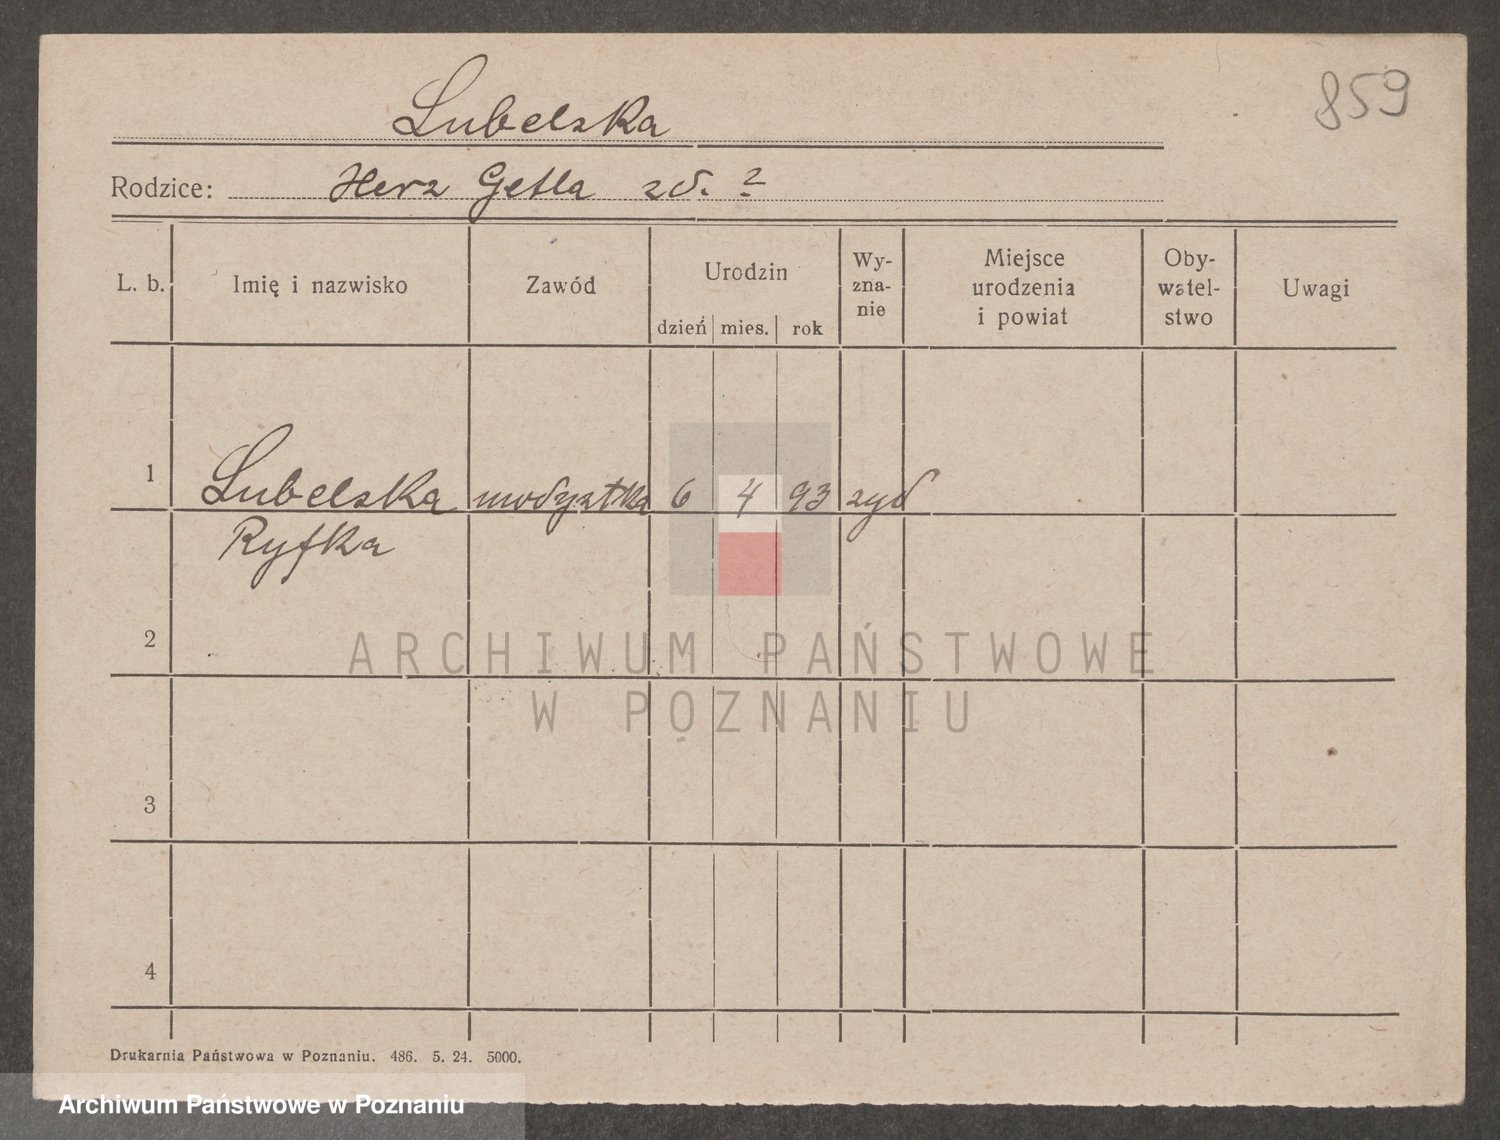 859
Lubelska
Rodzice: Herz Getla zd. ?
L. b.
Imię i nazwisko
Zawód
Urodzin
dzień mies. rok
Wy-
zna-
nie
Miejsce
urodzenia
i powiat
Oby-
watel-
stwo
Uwagi
1 Lubelska modystka 6 4 93 żyd
Ryfka
2
ARCHIWUM PAŃSTWOWE
W POZNANIU
3
4
Drukarnia Państwowa w Poznaniu. 486. 5. 24. 5000.
Archiwum Państwowe w Poznaniu